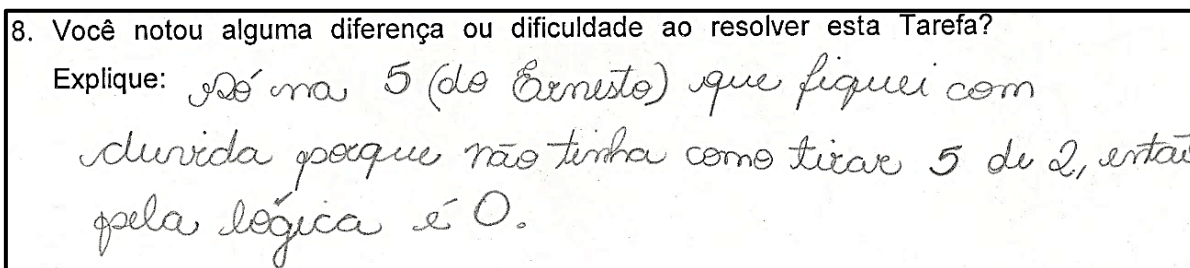 8. Você notou alguma diferença ou dificuldade ao resolver esta Tarefa?
Explique: só na 5 (do Ernesto) que fiquei com
duvida porque não tinha como tirar 5 de 2, então
pela lógica é 0.